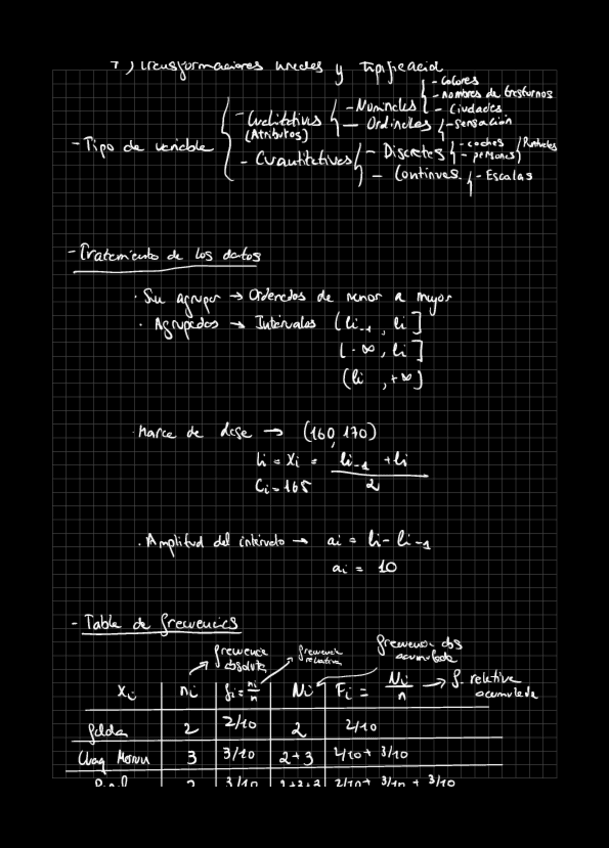 7) Transformaciones lineales y tipificación
- Tipo de variable
- Cualitativas (Atributos)
- Nominales
- Colores
- nombres de trastornos
- Ciudades
- Ordinales
- sensación
- Cuantitativas
- Discretas
- coches
- personas
- Continuas
- Escalas
- Tratamiento de los datos
· Sin agrupar → Ordenados de menor a mayor
· Agrupados → Intervalos (li-1, li]
(-∞, li]
(li, +∞)
· Marca de clase → (160, 170)
hi = Xi = li-1 + li / 2
Ci = 165
· Amplitud del intervalo → ai = li - li-1
ai = 10
- Tabla de frecuencias
frecuencia absoluta
frecuencia relativa
frecuencia abs acumulada
Xi ni fi = ni/n Ni Fi = Ni/n → f. relativa acumulada
2 2/10 2 2/10
3 3/10 2+3 2/10 + 3/10
3/10 2/10 + 3/10 + 3/10